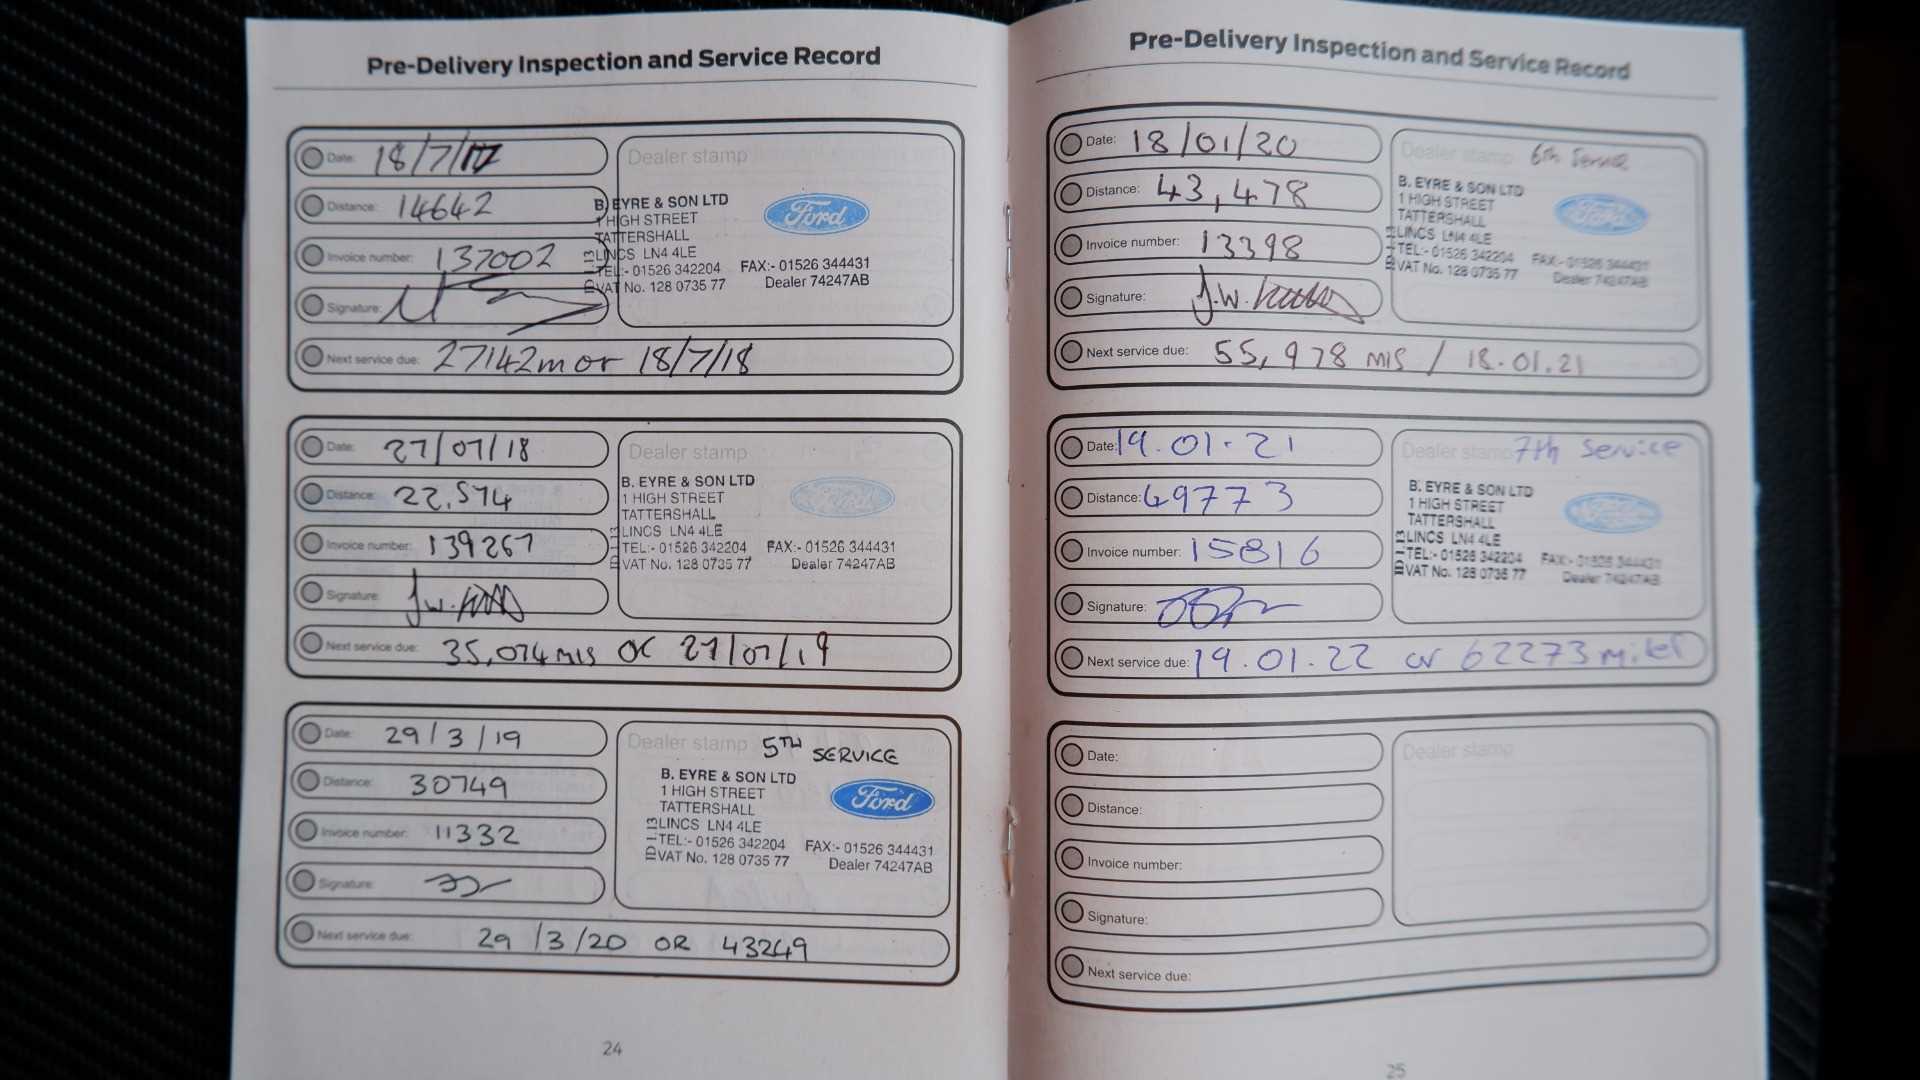 Pre-Delivery Inspection and Service Record
Date: 18/7/17
Distance: 14642
Invoice number: 137002
Signature:
Next service due: 27142m or 18/7/18
Dealer stamp
B. EYRE & SON LTD
1 HIGH STREET
TATTERSHALL
LINCS LN4 4LE
TEL:- 01526 342204 FAX:- 01526 344431
VAT No. 128 0735 77 Dealer 74247AB
Ford
Date: 27/07/18
Distance: 22,574
Invoice number: 139267
Signature:
Next service due: 35,074 MIS OR 27/07/19
Dealer stamp
B. EYRE & SON LTD
1 HIGH STREET
TATTERSHALL
LINCS LN4 4LE
TEL:- 01526 342204 FAX:- 01526 344431
VAT No. 128 0735 77 Dealer 74247AB
Ford
Date: 29/3/19
Distance: 30749
Invoice number: 11332
Signature:
Next service due: 29/3/20 OR 43249
Dealer stamp 5TH SERVICE
B. EYRE & SON LTD
1 HIGH STREET
TATTERSHALL
LINCS LN4 4LE
TEL:- 01526 342204 FAX:- 01526 344431
VAT No. 128 0735 77 Dealer 74247AB
Ford
24
Pre-Delivery Inspection and Service Record
Date: 18/01/20
Distance: 43,478
Invoice number: 13398
Signature: J.W.
Next service due: 55,978 MIS / 18.01.21
Dealer stamp 6th Service
B. EYRE & SON LTD
1 HIGH STREET
TATTERSHALL
LINCS LN4 4LE
TEL:- 01526 342204 FAX:- 01526 344431
VAT No. 128 0735 77 Dealer 74247AB
Ford
Date: 19.01.21
Distance: 49773
Invoice number: 15816
Signature:
Next service due: 19.01.22 or 62273 miles
Dealer stamp 7th Service
B. EYRE & SON LTD
1 HIGH STREET
TATTERSHALL
LINCS LN4 4LE
TEL:- 01526 342204 FAX:- 01526 344431
VAT No. 128 0735 77 Dealer 74247AB
Ford
Date:
Distance:
Invoice number:
Signature:
Next service due:
Dealer stamp
25